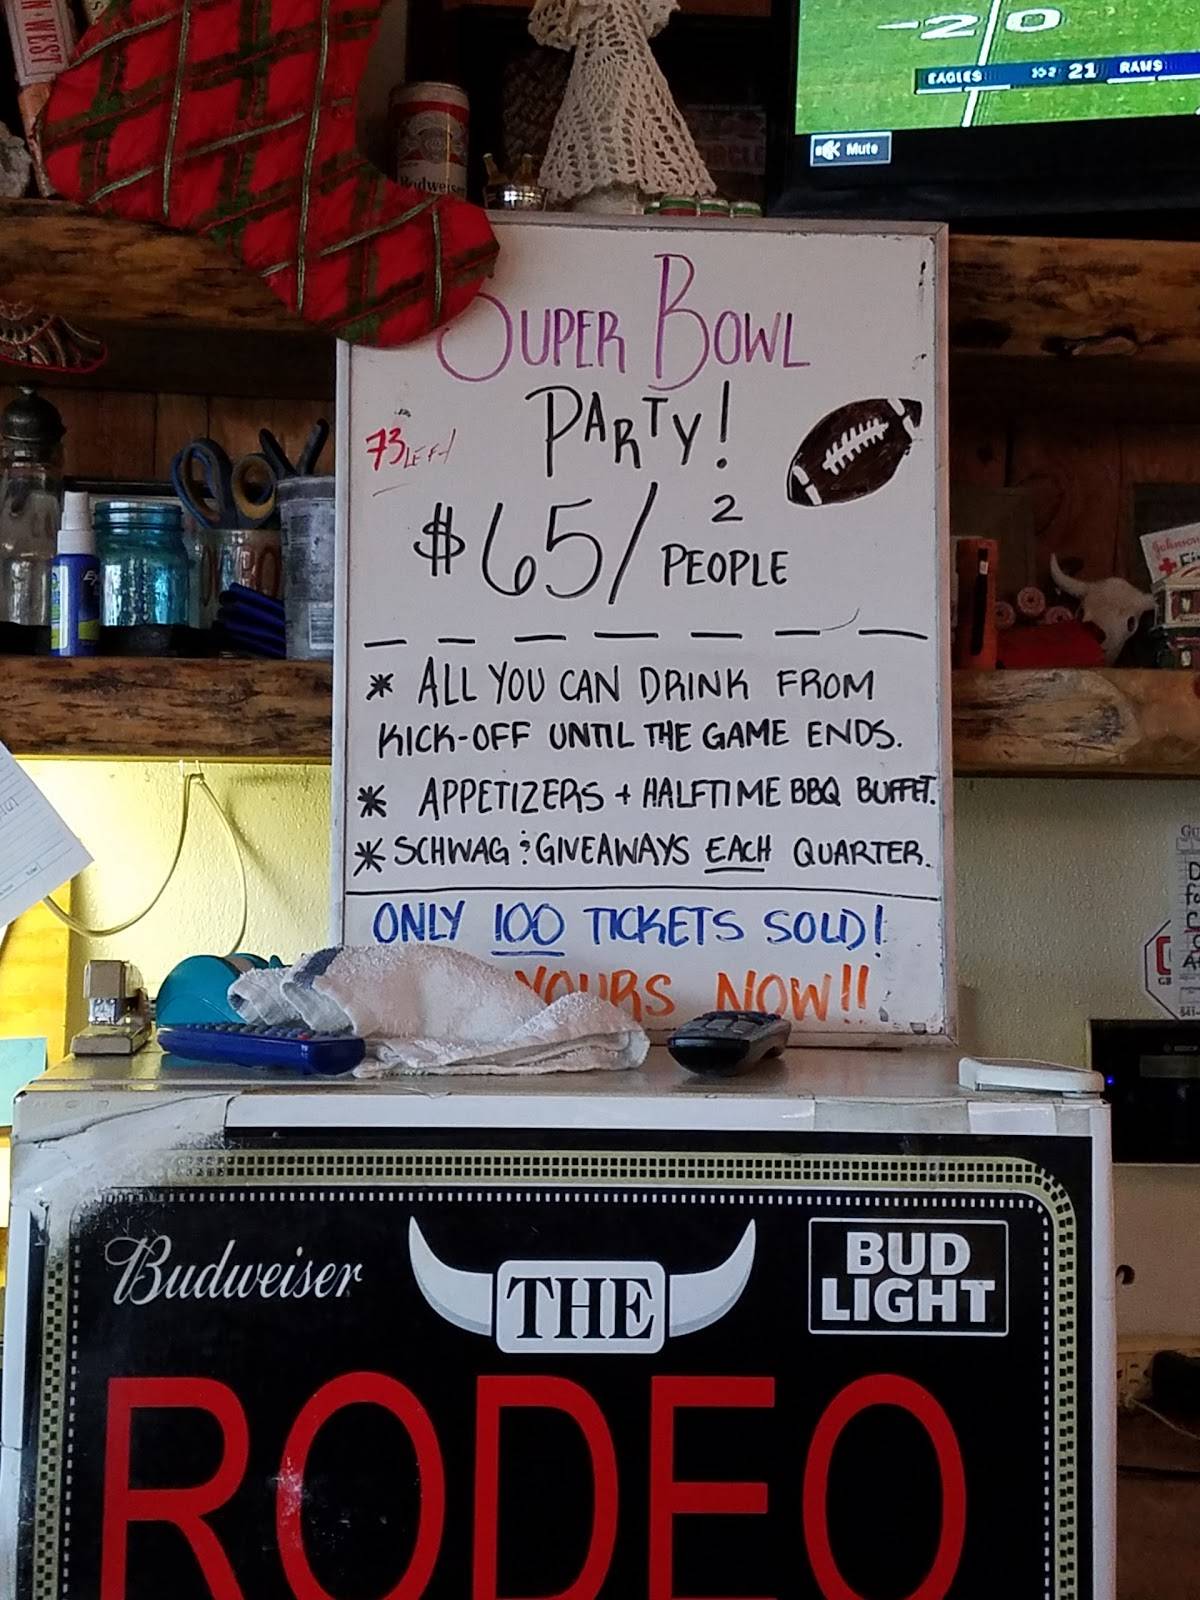 WEST
Budweiser
20
EAGLES 21 RAMS
Mute
SUPER BOWL
PARTY!
73 LEFT
$65/2 PEOPLE
* ALL YOU CAN DRINK FROM
KICK-OFF UNTIL THE GAME ENDS.
* APPETIZERS + HALFTIME BBQ BUFFET.
* SCHWAG & GIVEAWAYS EACH QUARTER.
ONLY 100 TICKETS SOLD!
YOURS NOW!!
Johnson
Budweiser
THE
BUD
LIGHT
RODEO